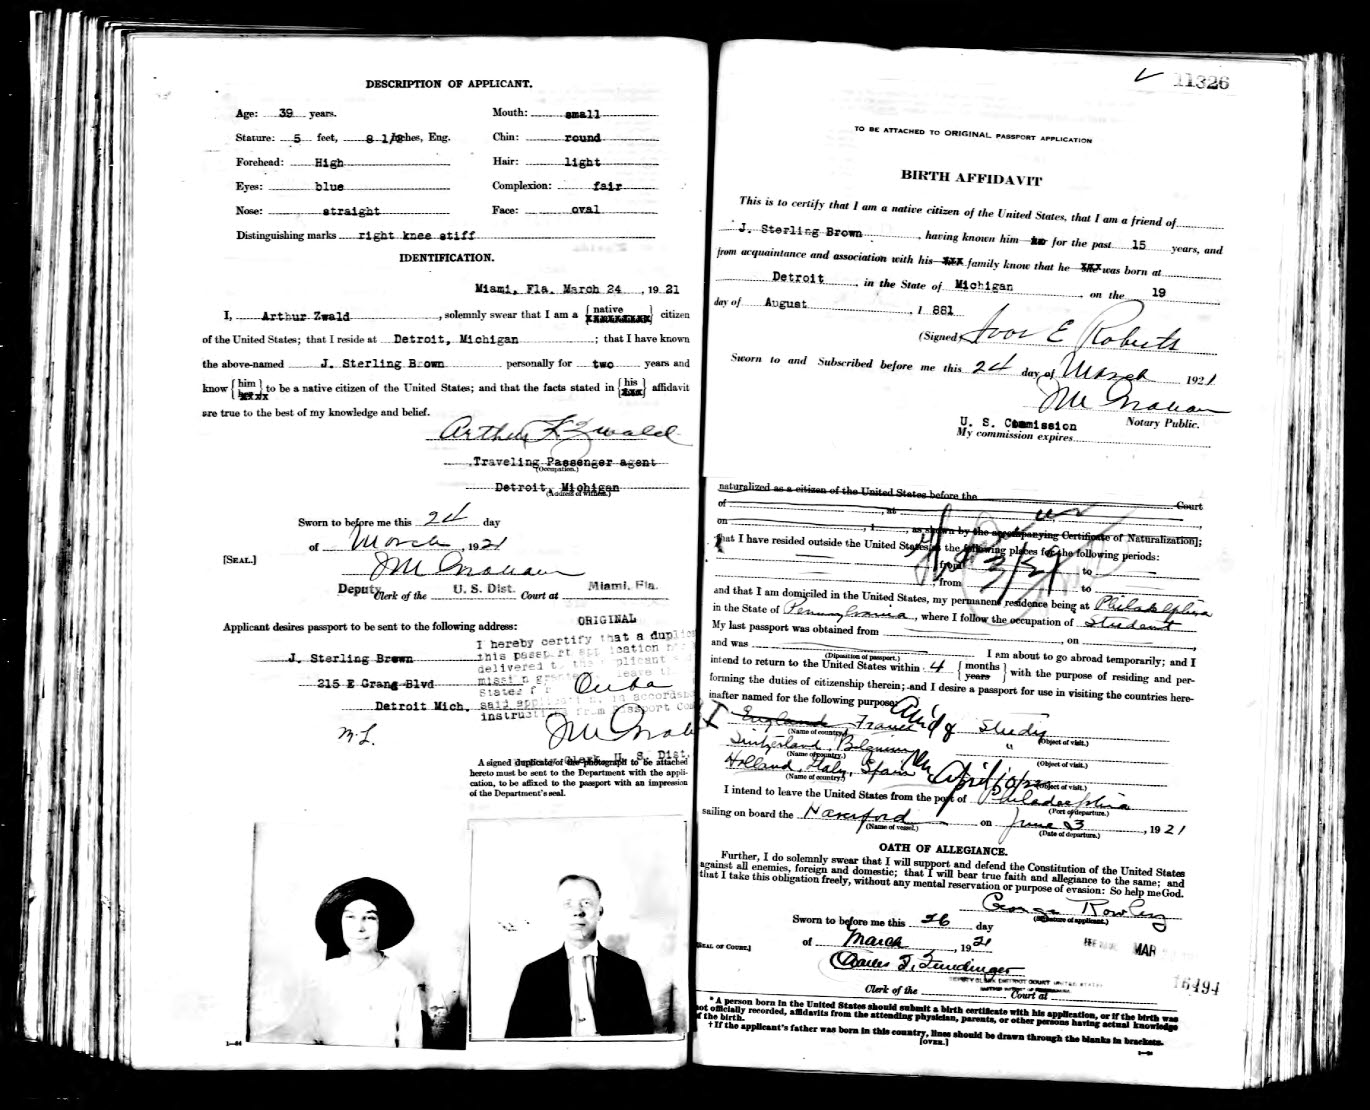 DESCRIPTION OF APPLICANT.
Age: 39 years.
Mouth: small
Stature: 5 feet, 8 1/2 inches, Eng.
Chin: round
Forehead: High
Hair: light
Eyes: blue
Complexion: fair
Nose: straight
Face: oval
Distinguishing marks right knee stiff
IDENTIFICATION.
Miami, Fla. March 24, 1921
I, Arthur Zwald, solemnly swear that I am a {native} citizen
of the United States; that I reside at Detroit, Michigan; that I have known
the above-named J. Sterling Brown personally for two years and
know {him} to be a native citizen of the United States; and that the facts stated in {his} affidavit
are true to the best of my knowledge and belief.
Arthur F Zwald
Traveling Passenger agent
(Occupation.)
Detroit, Michigan
(Address of witness.)
Sworn to before me this 24 day
of March, 1921
[SEAL.]
Deputy Clerk of the U. S. Dist. Court at Miami, Fla.
ORIGINAL
Applicant desires passport to be sent to the following address:
J. Sterling Brown
215 E Grand Blvd
Detroit Mich.
I hereby certify that a
this
delivered
States
Cuba
said
instructions from Passport
U. S. Dist.
A signed duplicate of the photograph to be attached
hereto must be sent to the Department with the appli-
cation, to be affixed to the passport with an impression
of the Department's seal.
11326
TO BE ATTACHED TO ORIGINAL PASSPORT APPLICATION
BIRTH AFFIDAVIT
This is to certify that I am a native citizen of the United States, that I am a friend of
J. Sterling Brown, having known him for the past 15 years, and
from acquaintance and association with his family know that he was born at
Detroit, in the State of Michigan, on the 19
day of August, 1881
(Signed) E Roberts
Sworn to and Subscribed before me this 24 day of March 1921
U. S. Commission
Notary Public.
My commission expires
naturalized as a citizen of the United States before the Court
of , at
on , 1 , as shown by the accompanying Certificate of Naturalization];
that I have resided outside the United States at the following places for the following periods:
from to
from to
and that I am domiciled in the United States, my permanent residence being at Philadelphia
in the State of Pennsylvania, where I follow the occupation of Student
My last passport was obtained from , on
and was
(Disposition of passport.)
I am about to go abroad temporarily; and I
intend to return to the United States within 4 {months years} with the purpose of residing and per-
forming the duties of citizenship therein; and I desire a passport for use in visiting the countries here-
inafter named for the following purpose:
England France Study
(Name of country.) (Object of visit.)
Switzerland, Belgium "
(Name of country.) (Object of visit.)
Holland, Italy, Spain
(Name of country.) (Object of visit.)
I intend to leave the United States from the port of Philadelphia
(Port of departure.)
sailing on board the Haverford on June 23, 1921
(Name of vessel.) (Date of departure.)
OATH OF ALLEGIANCE.
Further, I do solemnly swear that I will support and defend the Constitution of the United States
against all enemies, foreign and domestic; that I will bear true faith and allegiance to the same; and
that I take this obligation freely, without any mental reservation or purpose of evasion: So help me God.
George Rowley
(Signature of applicant.)
Sworn to before me this 26 day
of March, 1921
[SEAL OF COURT.]
MAR
16494
Clerk of the Court at
* A person born in the United States should submit a birth certificate with his application, or if the birth was
not officially recorded, affidavits from the attending physician, parents, or other persons having actual knowledge
of the birth.
† If the applicant's father was born in this country, lines should be drawn through the blanks in brackets.
[OVER.]